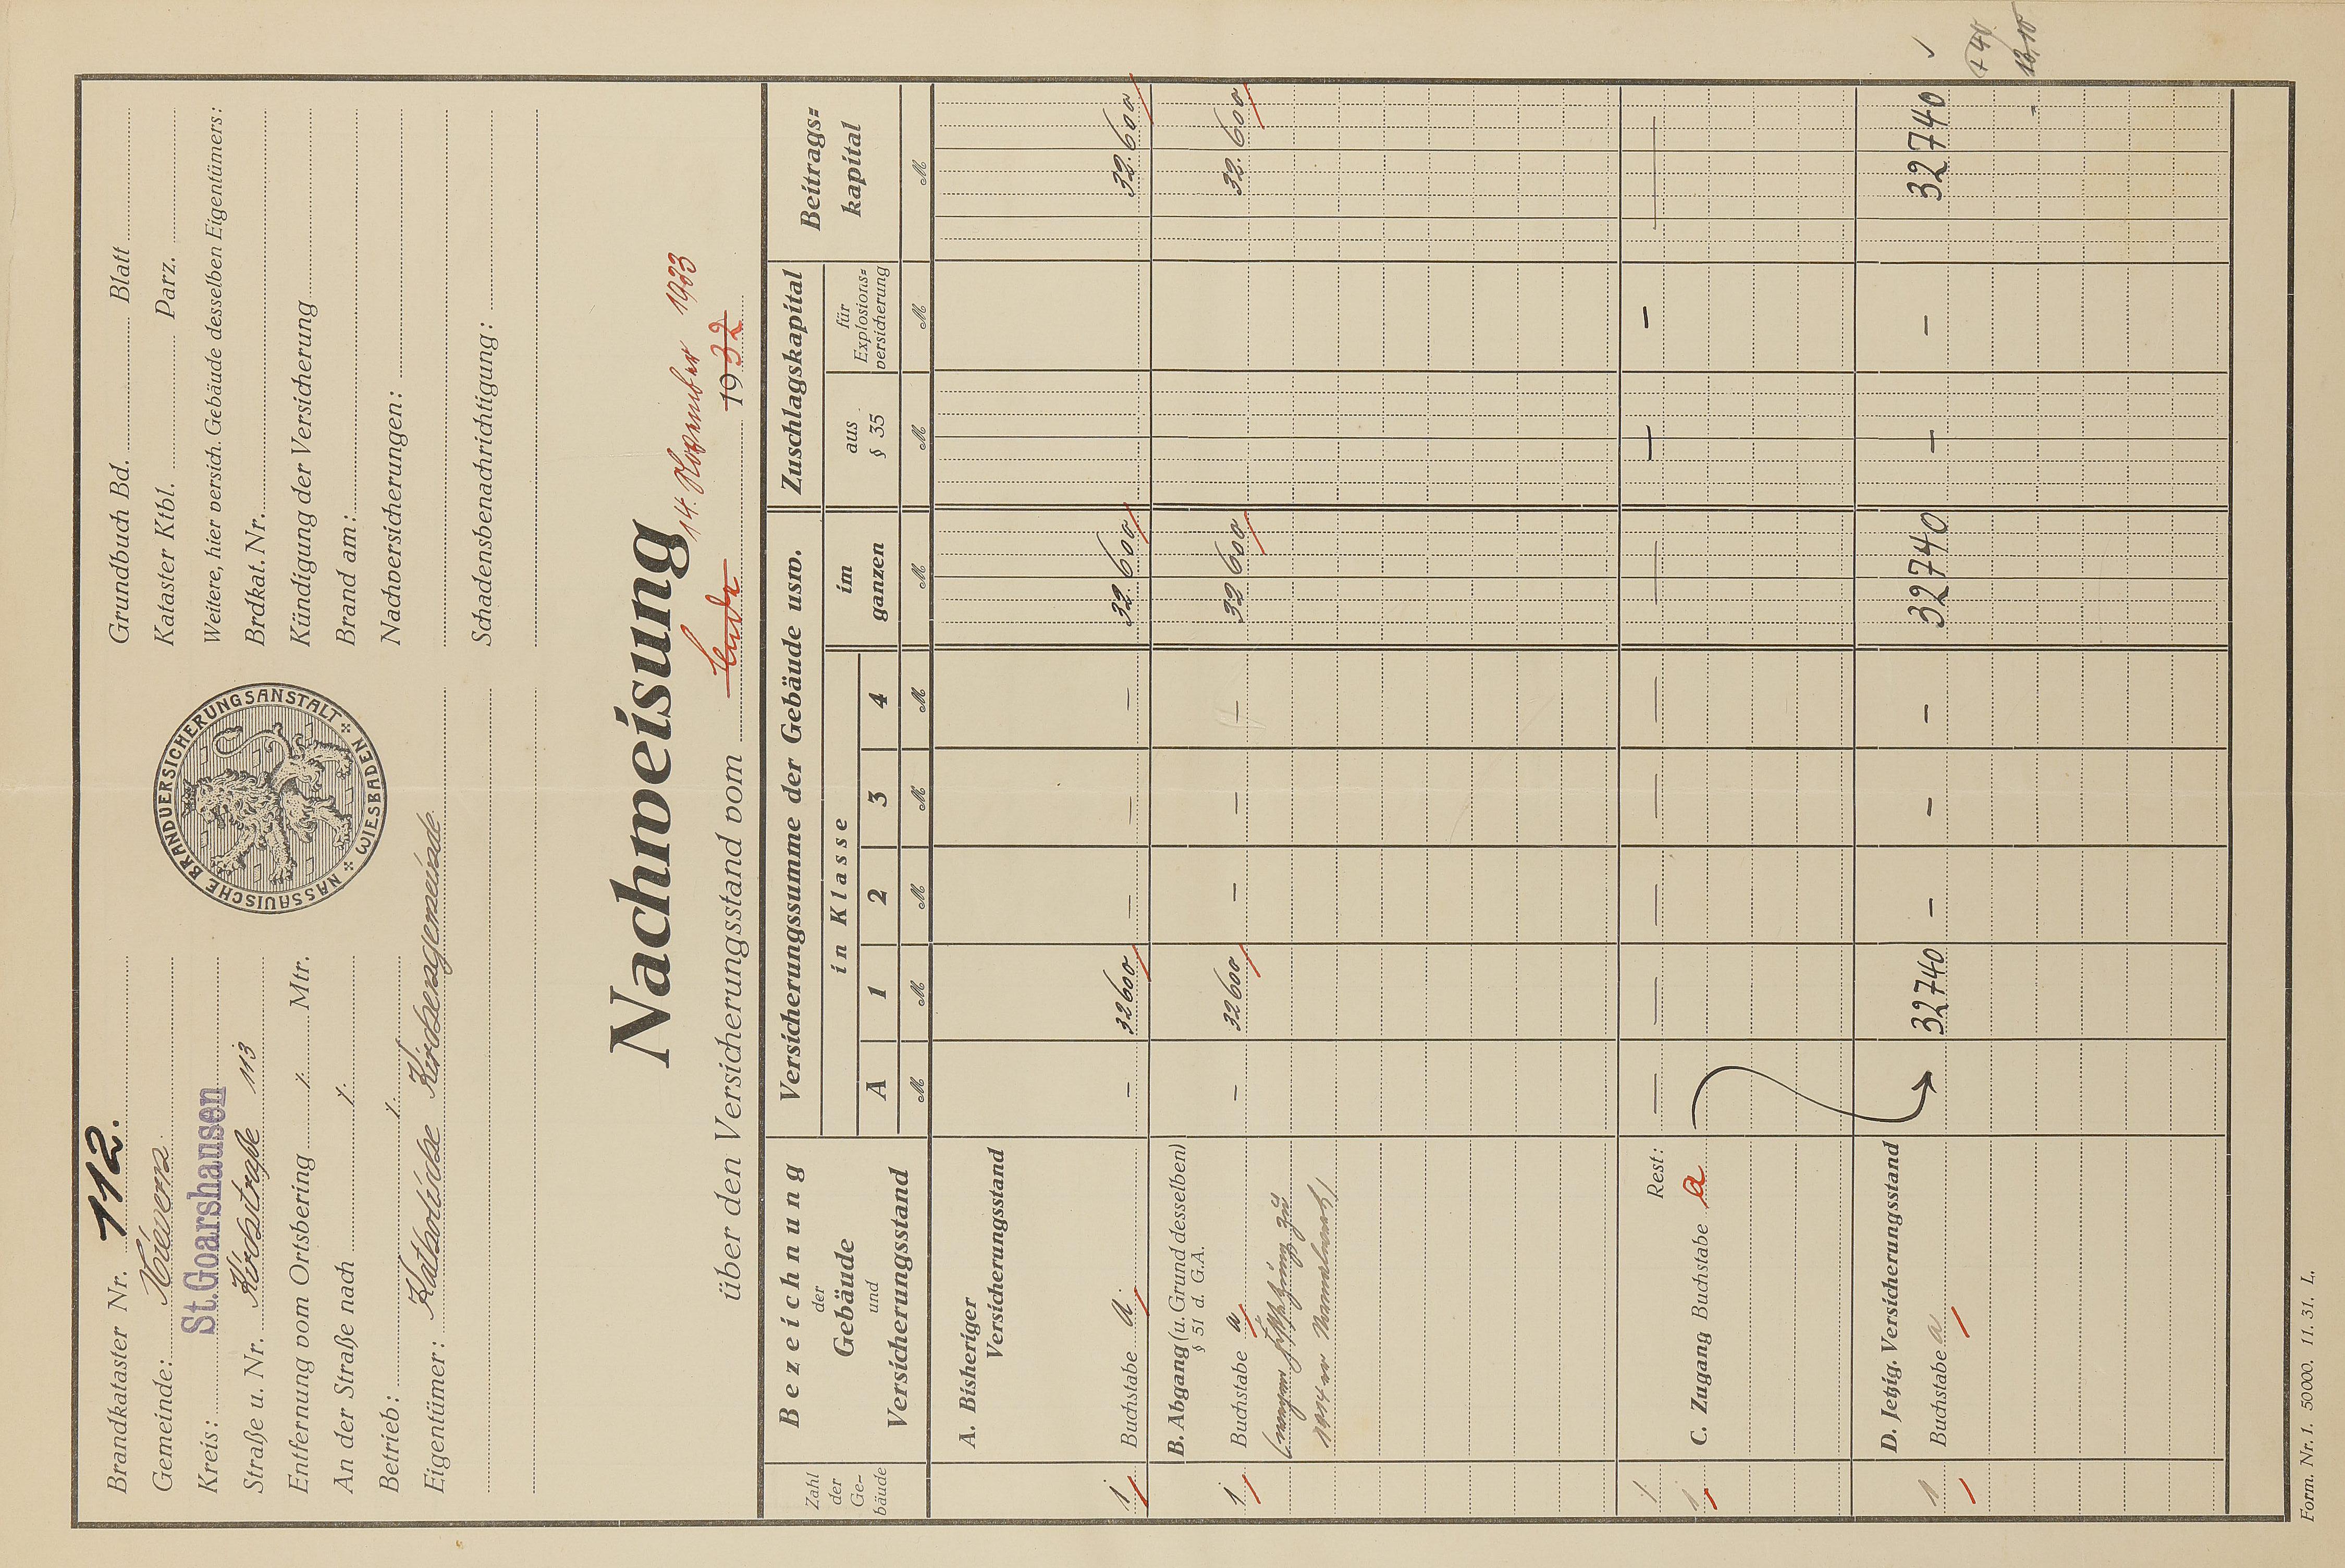 Brandkataster Nr. 112.
Gemeinde: Kievern
Kreis: St. Goarshausen
Straße u. Nr. Kirchstraße 113
Entfernung vom Ortsbering ./. Mtr.
An der Straße nach ./.
Betrieb: ./.
Eigentümer: Katholische Kirchengemeinde
NASSAUISCHE BRANDVERSICHERUNGSANSTALT
WIESBADEN
Grundbuch Bd. Blatt
Kataster Ktbl. Parz.
Weitere, hier versich. Gebäude desselben Eigentümers:
Brdkat. Nr.
Kündigung der Versicherung
Brand am:
Nachversicherungen:
Schadensbenachrichtigung:
Nachweisung
14. November 1933
über den Versicherungsstand vom Ende 1932
Zahl der Ge-bäude
Bezeichnung der Gebäude und Versicherungsstand
Versicherungssumme der Gebäude usw.
in Klasse
A 1 2 3 4
im ganzen
Zuschlagskapital
aus § 35
für Explosions-versicherung
Beitrags-kapital
M M M M M M M M M
A. Bisheriger Versicherungsstand
1 Buchstabe a. – 32600 – – – 32 600 32.600
B. Abgang (u. Grund desselben)
§ 51 d. G.A.
1. Buchstabe a – 32600 – – – 32 600 32.600
(wegen zu
1914er
Rest: – – – – – – – – –
1 C. Zugang Buchstabe a
D. Jetzig. Versicherungsstand
1 Buchstabe a 32740 – – – 32740 – – 32740
Form. Nr. 1. 50000. 11. 31. L.